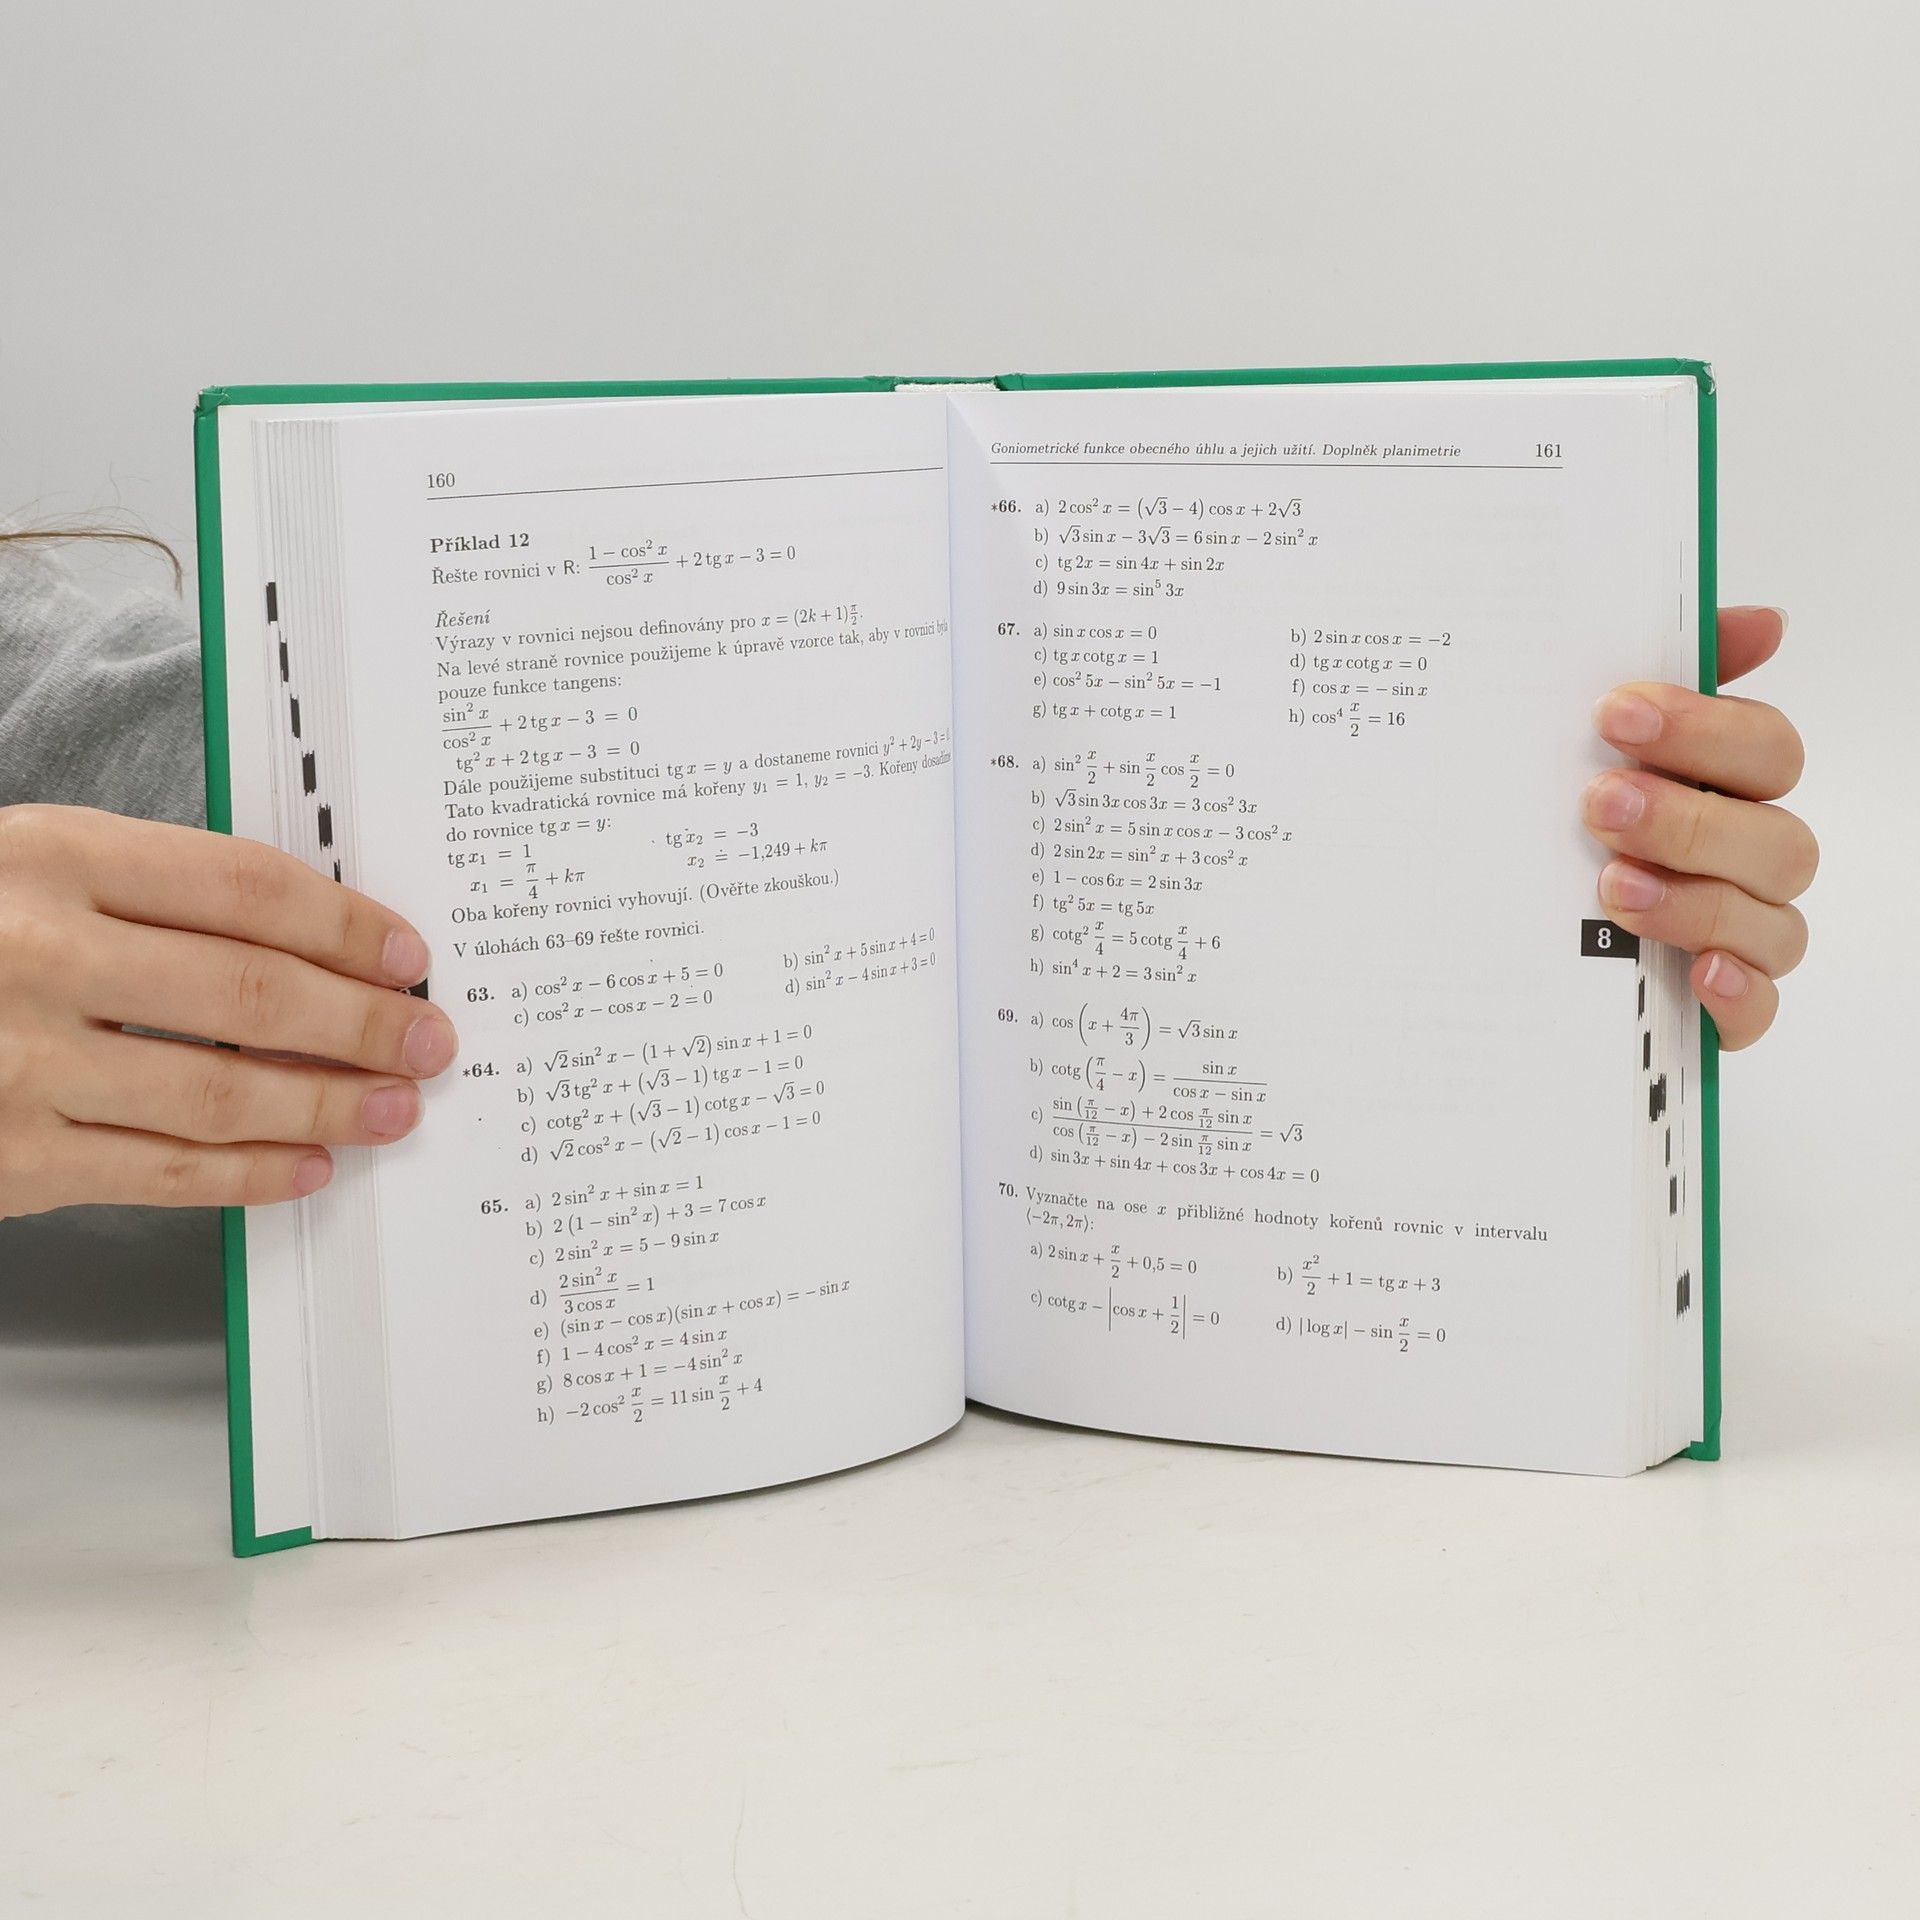 160
Příklad 12
Řešte rovnici v R: (1 − cos² x)/(cos² x) + 2 tg x − 3 = 0
Řešení
Výrazy v rovnici nejsou definovány pro x = (2k + 1)π/2.
Na levé straně rovnice použijeme k úpravě vzorce tak, aby v rovnici byla
pouze funkce tangens:
(sin² x)/(cos² x) + 2 tg x − 3 = 0
tg² x + 2 tg x − 3 = 0
Dále použijeme substituci tg x = y a dostaneme rovnici y² + 2y − 3 = 0.
Tato kvadratická rovnice má kořeny y₁ = 1, y₂ = −3. Kořeny dosadíme
do rovnice tg x = y:
tg x₁ = 1 tg x₂ = −3
x₁ = π/4 + kπ x₂ ≐ −1,249 + kπ
Oba kořeny rovnici vyhovují. (Ověřte zkouškou.)
V úlohách 63–69 řešte rovnici.
63. a) cos² x − 6 cos x + 5 = 0 b) sin² x + 5 sin x + 4 = 0
c) cos² x − cos x − 2 = 0 d) sin² x − 4 sin x + 3 = 0
*64. a) √2 sin² x − (1 + √2) sin x + 1 = 0
b) √3 tg² x + (√3 − 1) tg x − 1 = 0
c) cotg² x + (√3 − 1) cotg x − √3 = 0
d) √2 cos² x − (√2 − 1) cos x − 1 = 0
65. a) 2 sin² x + sin x = 1
b) 2 (1 − sin² x) + 3 = 7 cos x
c) 2 sin² x = 5 − 9 sin x
d) (2 sin² x)/(3 cos x) = 1
e) (sin x − cos x)(sin x + cos x) = − sin x
f) 1 − 4 cos² x = 4 sin x
g) 8 cos x + 1 = −4 sin² x
h) −2 cos² x/2 = 11 sin x/2 + 4
Goniometrické funkce obecného úhlu a jejich užití. Doplněk planimetrie 161
*66. a) 2 cos² x = (√3 − 4) cos x + 2√3
b) √3 sin x − 3√3 = 6 sin x − 2 sin² x
c) tg 2x = sin 4x + sin 2x
d) 9 sin 3x = sin⁵ 3x
67. a) sin x cos x = 0 b) 2 sin x cos x = −2
c) tg x cotg x = 1 d) tg x cotg x = 0
e) cos² 5x − sin² 5x = −1 f) cos x = − sin x
g) tg x + cotg x = 1 h) cos⁴ x/2 = 16
*68. a) sin² x/2 + sin x/2 cos x/2 = 0
b) √3 sin 3x cos 3x = 3 cos² 3x
c) 2 sin² x = 5 sin x cos x − 3 cos² x
d) 2 sin 2x = sin² x + 3 cos² x
e) 1 − cos 6x = 2 sin 3x
f) tg² 5x = tg 5x
g) cotg² x/4 = 5 cotg x/4 + 6
h) sin⁴ x + 2 = 3 sin² x
8
69. a) cos (x + 4π/3) = √3 sin x
b) cotg (π/4 − x) = (sin x)/(cos x − sin x)
c) (sin (π/12 − x) + 2 cos π/12 sin x)/(cos (π/12 − x) − 2 sin π/12 sin x) = √3
d) sin 3x + sin 4x + cos 3x + cos 4x = 0
70. Vyznačte na ose x přibližné hodnoty kořenů rovnic v intervalu
⟨−2π, 2π⟩:
a) 2 sin x + x/2 + 0,5 = 0 b) x²/2 + 1 = tg x + 3
c) cotg x − |cos x + 1/2| = 0 d) |log x| − sin x/2 = 0